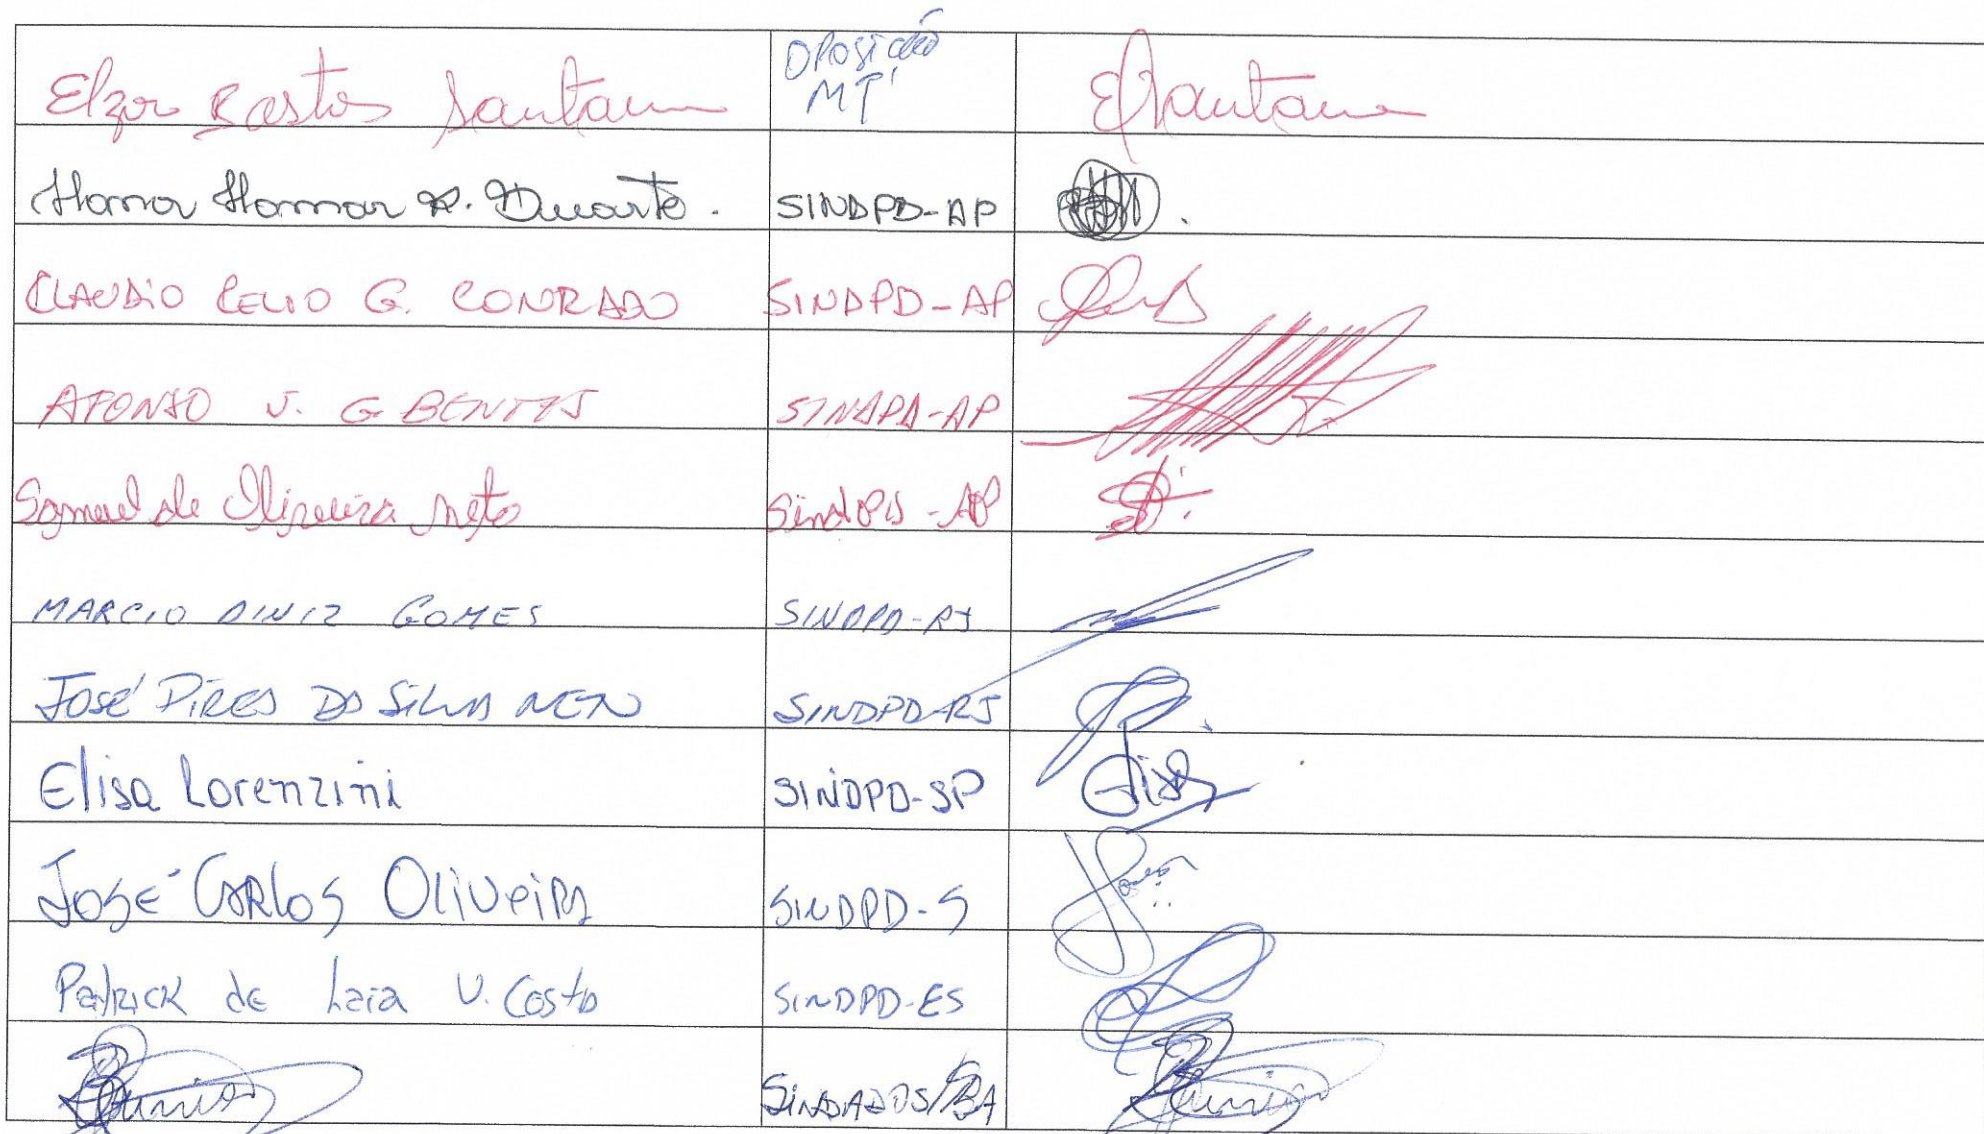 Elzor Bastos Santana OPOSIÇÃO
MT ESantana
Homar R. Duarte. SINDPD-AP
CLAUDIO CELIO G. CONRADO SINDPD-AP
AFONSO J. G BENTES SINDPD-AP
Samuel de Oliveira Neto SindPD-AP
MARCIO DINIZ GOMES SINDPD-RJ
JOSÉ PIRES DA SILVA NETO SINDPD-RJ
Elisa Lorenzini SINDPD-SP
JOSÉ CARLOS OLIVEIRA SINDPD-S
PATRICK de Laia V. Costa SINDPD-ES
SINDADOS/BA